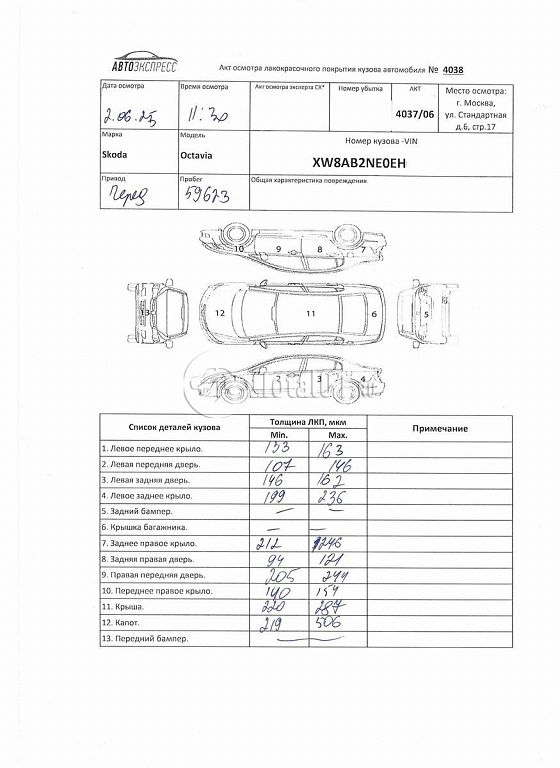 АВТОЭКСПРЕСС
Акт осмотра лакокрасочного покрытия кузова автомобиля № 4038
Дата осмотра Время осмотра Акт осмотра эксперта СК* Номер убытка АКТ Место осмотра:
г. Москва,
ул. Стандартная
д.6, стр.17
2.06.25 11:30 4037/06
Марка Модель Номер кузова -VIN
Skoda Octavia XW8AB2NE0EH
Привод Пробег Общая характеристика повреждений
Перед 59673
10 9 8 7
13 12 11 6 5
1 2 3 4
Список деталей кузова Толщина ЛКП, мкм Примечание
Min. Max.
1. Левое переднее крыло. 153 163
2. Левая передняя дверь. 107 146
3. Левая задняя дверь. 146 162
4. Левое заднее крыло. 199 236
5. Задний бампер. — —
6. Крышка багажника. — —
7. Заднее правое крыло. 212 246
8. Задняя правая дверь. 94 121
9. Правая передняя дверь. 205 244
10. Переднее правое крыло. 140 154
11. Крыша. 220 287
12. Капот. 219 506
13. Передний бампер. —